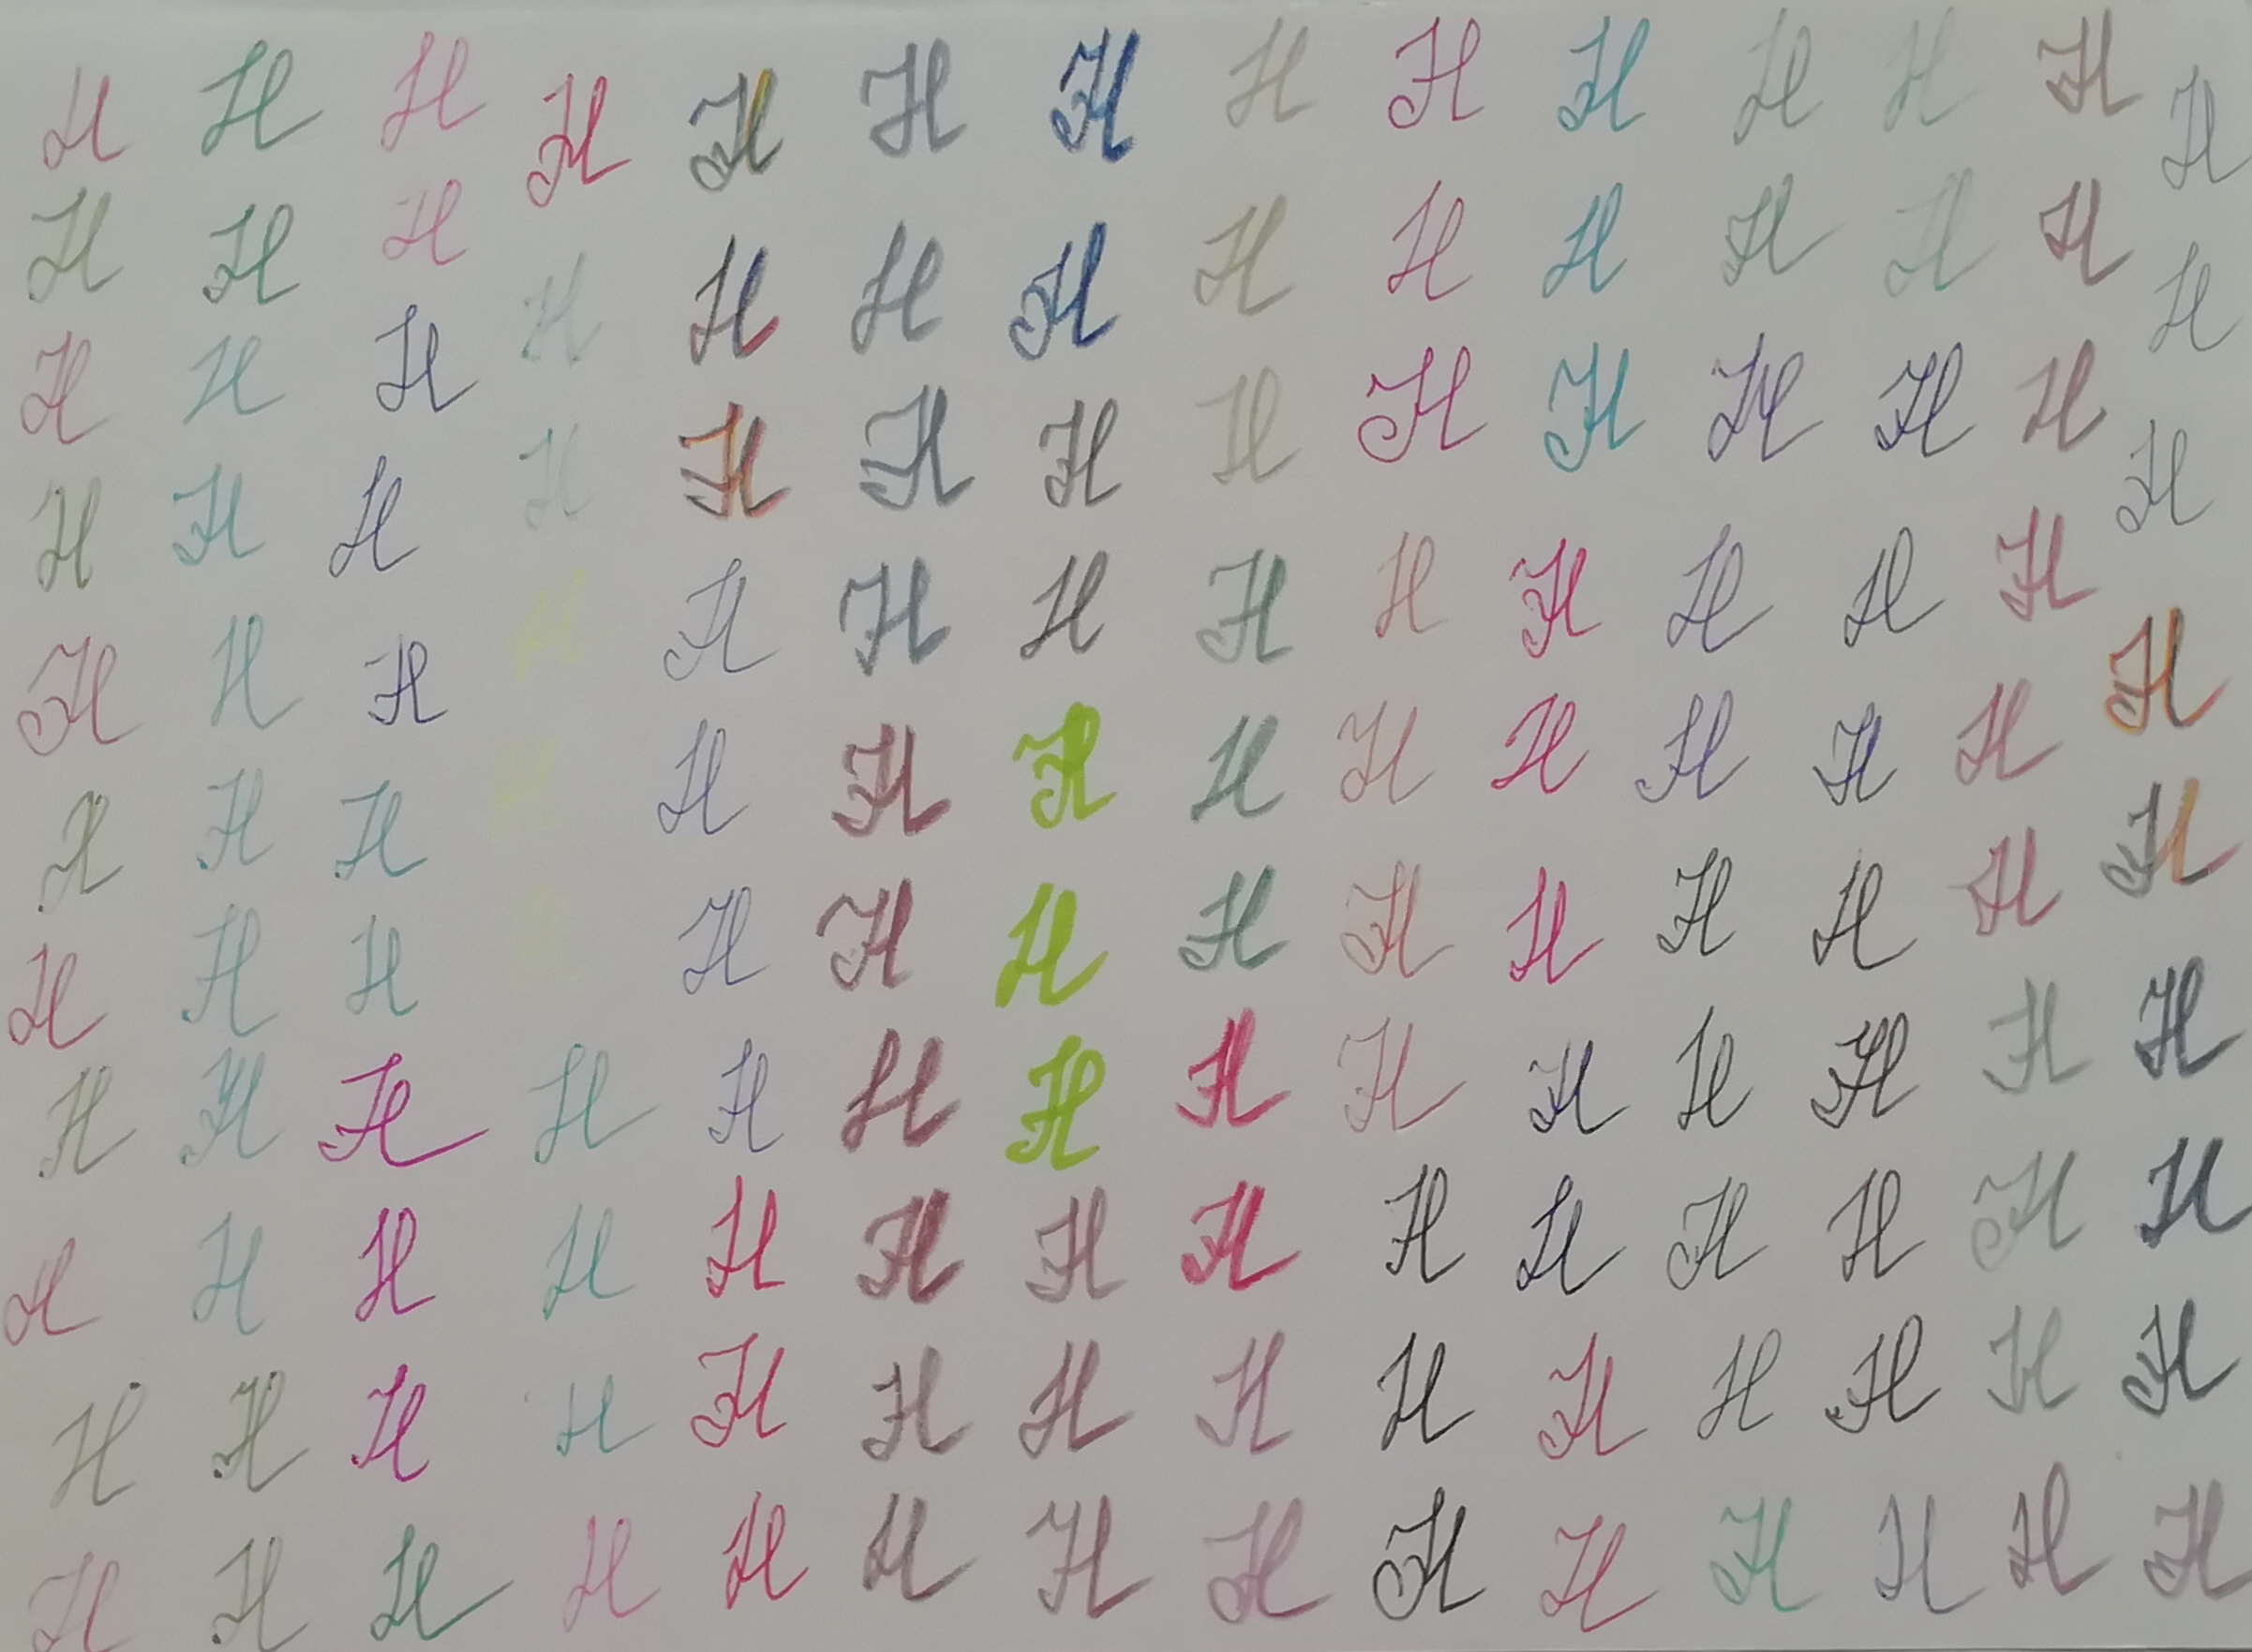 H H H H H H H H H H H H H H
H H H H H H H H H H H H H H
H H H H H H H H H H H H H H
H H H H H H H H H H H H H H
H H H H H H H H H H H H H H
H H H H H H H H H H H H H H
H H H H H H H H H H H H H H
H H H H H H H H H H H H H H
H H H H H H H H H H H H H H
H H H H H H H H H H H H H
H H H